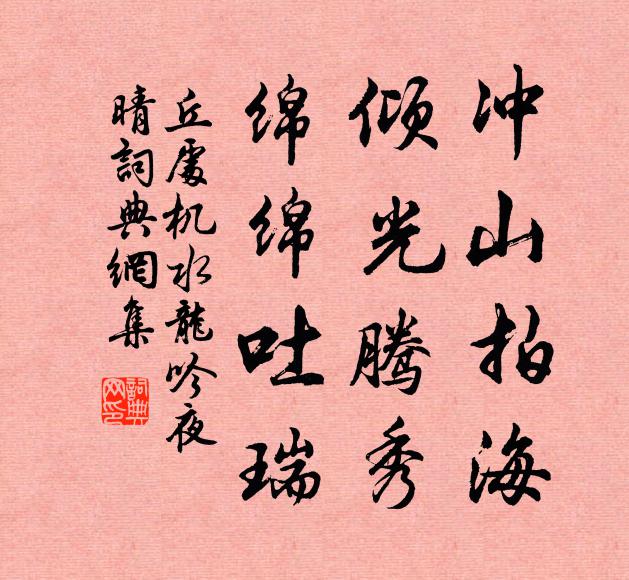 冲山拍海
倾光腾秀
绵绵吐瑞
丘處机水龍吟夜
晴詞典網集
詞典
网印